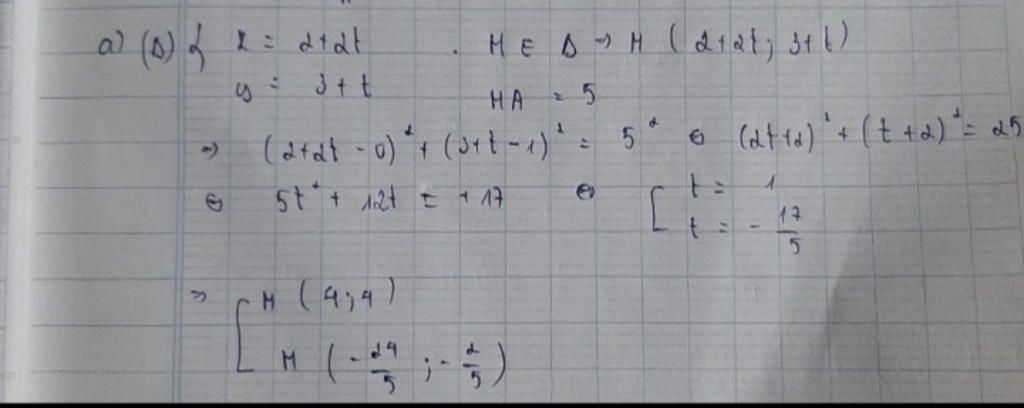 a) (Δ) { x = 2+2t . M ∈ Δ → M (2+2t; 3+t)
y = 3+t MA = 5
⇒ (2+2t-0)² + (3+t-1)² = 5² ⇔ (2t+2)² + (t+2)² = 25
⇔ 5t² + 12t = +17 ⇔ [ t = 1
t = -17/5
⇒ [ M (4;4)
M (-24/5; -2/5)